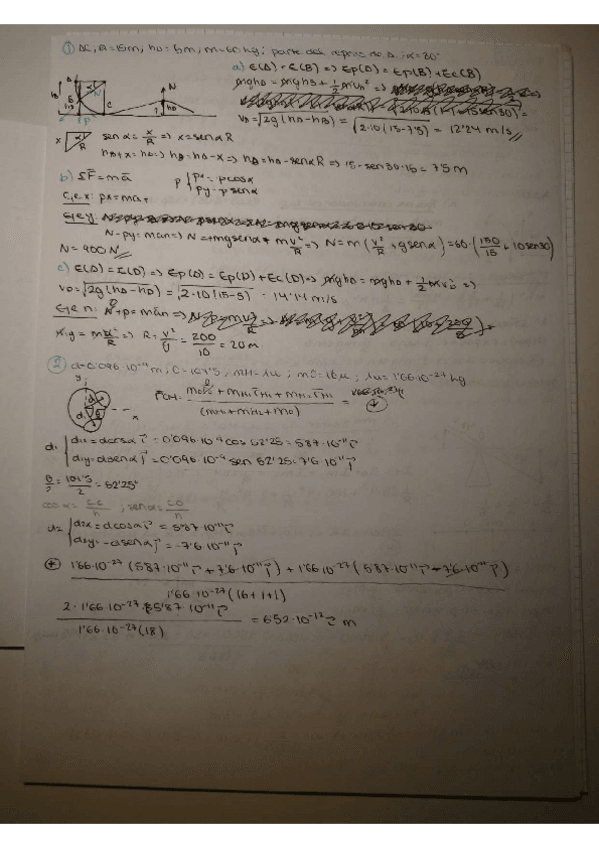 ① AC, R=15m, hD=5m, m=60kg; parte del reposo no A; α=30°
a) E(A)=E(B) => Ep(A)=Ep(B)+Ec(B)
mghA = mghB + 1/2 mvB² =>
vB = √2g(hA-hB) = √2·10(15-7'5) = 12'24 m/s
sen α = x/R => x = senα R
hB+x=hA => hB=hA-x => hB=hA-senαR => 15-sen30·15=7'5m
b) ΣF̄=mā P { Px=pcosα
Py=psenα
Eje x: px=maT
Eje y:
N-py=man => N=+mgsenα+m v²/R => N=m(v²/R+gsenα)=60·(150/15+10sen30)
N=900N
c) E(A)=E(D) => Ep(A)=Ep(D)+Ec(D) => mghA=mghD+1/2 mvD² =>
vD=√2g(hA-hD)=√2·10(15-5)=14'14 m/s
Eje n: N+p=man =>
m·g=m v²/R => R=v²/g=200/10=20m
② d=0'096·10⁻⁹m; θ=104'5, mH=1u; mO=16u; 1u=1'66·10⁻²⁷kg
d₁ { d1x=dcosα i = 0'096·10⁻⁹cos 52'25=5'87·10⁻¹¹ i
d1y=dsenα j = 0'096·10⁻⁹ sen 52'25=7'6·10⁻¹¹ j
θ/2=104'5/2=52'25°
cos α=CC/h ; senα=CO/h
d₂= { d2x=dcosα i = 5'87·10⁻¹¹ i
d2y=-dsenα j = -7'6·10⁻¹¹ j
1'66·10⁻²⁷(5'87·10⁻¹¹ i+7'6·10⁻¹¹ j)+1'66·10⁻²⁷(5'87·10⁻¹¹ i-7'6·10⁻¹¹ j)
1'66·10⁻²⁷(16+1+1)
2·1'66·10⁻²⁷·5'87·10⁻¹¹ i
1'66·10⁻²⁷(18)
= 6'52·10⁻¹² i m